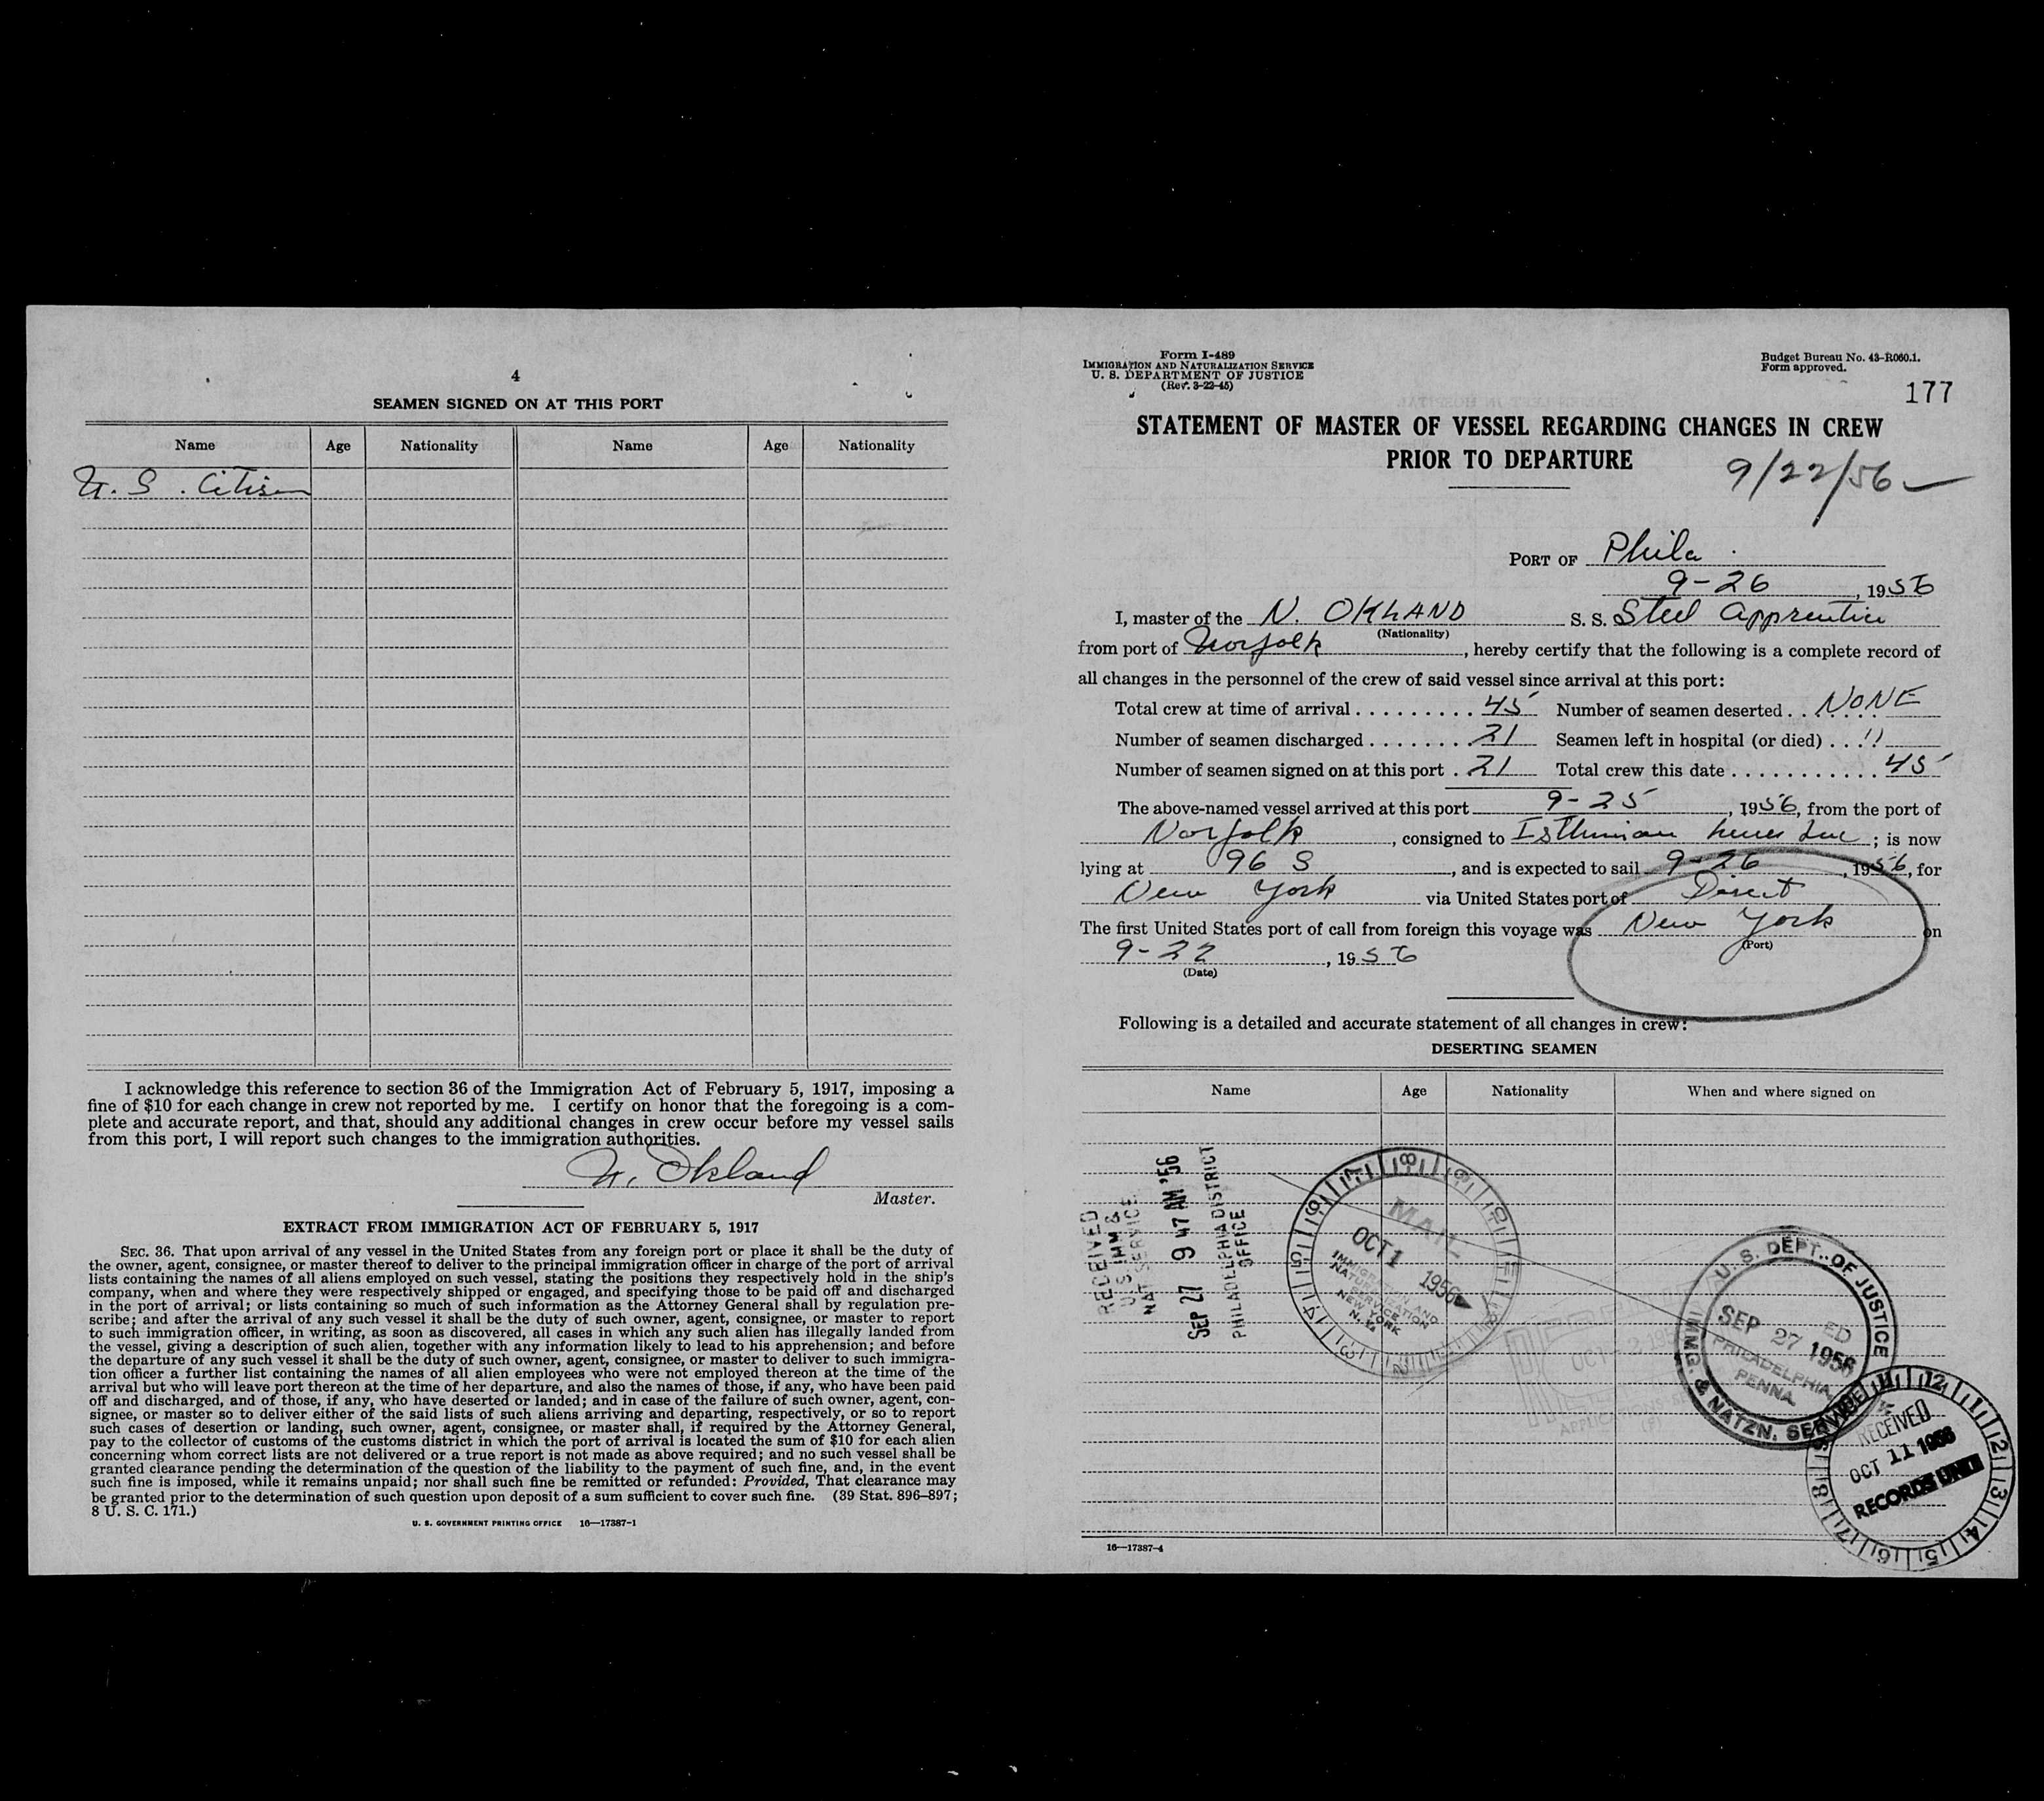 4
SEAMEN SIGNED ON AT THIS PORT
Name Age Nationality Name Age Nationality
U. S. Citizen
I acknowledge this reference to section 36 of the Immigration Act of February 5, 1917, imposing a
fine of $10 for each change in crew not reported by me. I certify on honor that the foregoing is a com-
plete and accurate report, and that, should any additional changes in crew occur before my vessel sails
from this port, I will report such changes to the immigration authorities.
N. Okland
Master.
EXTRACT FROM IMMIGRATION ACT OF FEBRUARY 5, 1917
SEC. 36. That upon arrival of any vessel in the United States from any foreign port or place it shall be the duty of
the owner, agent, consignee, or master thereof to deliver to the principal immigration officer in charge of the port of arrival
lists containing the names of all aliens employed on such vessel, stating the positions they respectively hold in the ship's
company, when and where they were respectively shipped or engaged, and specifying those to be paid off and discharged
in the port of arrival; or lists containing so much of such information as the Attorney General shall by regulation pre-
scribe; and after the arrival of any such vessel it shall be the duty of such owner, agent, consignee, or master to report
to such immigration officer, in writing, as soon as discovered, all cases in which any such alien has illegally landed from
the vessel, giving a description of such alien, together with any information likely to lead to his apprehension; and before
the departure of any such vessel it shall be the duty of such owner, agent, consignee, or master to deliver to such immigra-
tion officer a further list containing the names of all alien employees who were not employed thereon at the time of the
arrival but who will leave port thereon at the time of her departure, and also the names of those, if any, who have been paid
off and discharged, and of those, if any, who have deserted or landed; and in case of the failure of such owner, agent, con-
signee, or master so to deliver either of the said lists of such aliens arriving and departing, respectively, or so to report
such cases of desertion or landing, such owner, agent, consignee, or master shall, if required by the Attorney General,
pay to the collector of customs of the customs district in which the port of arrival is located the sum of $10 for each alien
concerning whom correct lists are not delivered or a true report is not made as above required; and no such vessel shall be
granted clearance pending the determination of the question of the liability to the payment of such fine, and, in the event
such fine is imposed, while it remains unpaid; nor shall such fine be remitted or refunded: Provided, That clearance may
be granted prior to the determination of such question upon deposit of a sum sufficient to cover such fine. (39 Stat. 896–897;
8 U. S. C. 171.)
U. S. GOVERNMENT PRINTING OFFICE 16—17387-1
Form I-489
IMMIGRATION AND NATURALIZATION SERVICE
U. S. DEPARTMENT OF JUSTICE
(Rev. 3-22-45)
Budget Bureau No. 43-R060.1.
Form approved.
177
STATEMENT OF MASTER OF VESSEL REGARDING CHANGES IN CREW
PRIOR TO DEPARTURE
9/22/56
PORT OF Phila.
9-26, 1956
I, master of the N. OKLAND S. S. Steel Apprentice
(Nationality)
from port of Norfolk, hereby certify that the following is a complete record of
all changes in the personnel of the crew of said vessel since arrival at this port:
Total crew at time of arrival . . . . . . . . . 45 Number of seamen deserted . . NONE
Number of seamen discharged . . . . . . . . 21 Seamen left in hospital (or died) . . . "
Number of seamen signed on at this port . 21 Total crew this date . . . . . . . . . . . . 45
The above-named vessel arrived at this port 9-25, 1956, from the port of
Norfolk, consigned to Isthmian Lines Inc; is now
lying at 96 S, and is expected to sail 9-26, 1956, for
New York via United States port of Direct
The first United States port of call from foreign this voyage was New York on
(Port)
9-22, 1956
(Date)
Following is a detailed and accurate statement of all changes in crew:
DESERTING SEAMEN
Name Age Nationality When and where signed on
RECEIVED
U.S. IMM &
NAT SERVICE
SEP 27 9 47 AM '56
PHILADELPHIA DISTRICT
OFFICE
MAIL
OCT 1 1956
IMMIGRATION AND
NATURALIZATION
SERVICE
NEW YORK
N. Y.
OCT 2 195
U. S. DEPT. OF JUSTICE
SEP 27 1956
PHILADELPHIA
PENNA
IMMG. & NATZN. SERVICE
RECEIVED
OCT 11 1956
RECORDS UNIT
16—17387-4